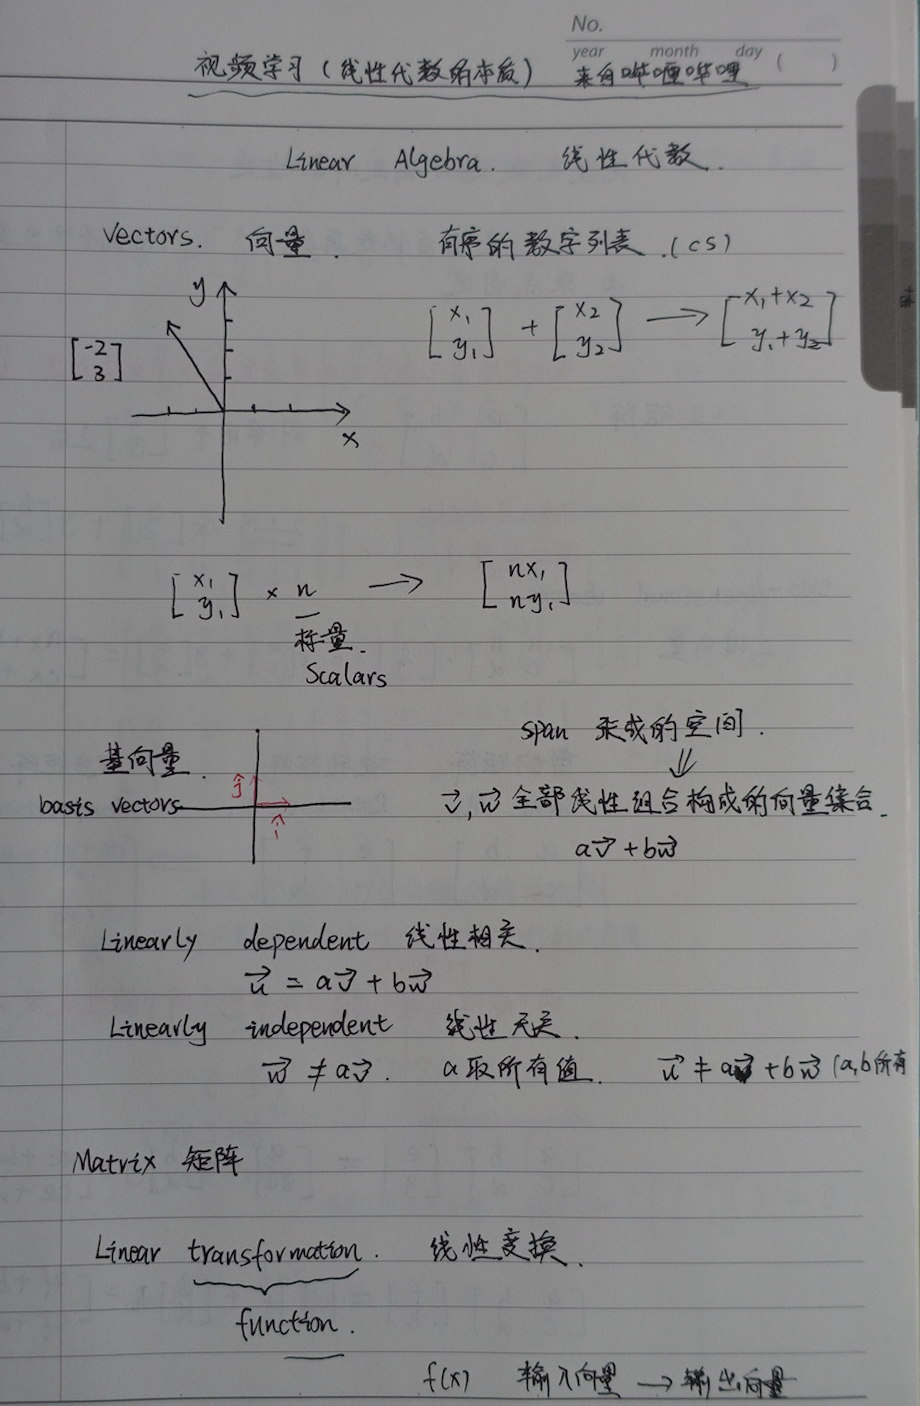 No.
year month day ( )
视频学习(线性代数的本质) 来自哔哩哔哩
Linear Algebra. 线性代数.
Vectors. 向量. 有序的数字列表.(CS)
y
[x₁ y₁] + [x₂ y₂] → [x₁+x₂ y₁+y₂]
[-2 3]
x
[x₁ y₁] × n → [nx₁ ny₁]
标量.
Scalars
span 张成的空间.
⇓
基向量. ĵ
basis vectors v⃗,w⃗ 全部线性组合构成的向量集合.
î
av⃗+bw⃗
Linearly dependent 线性相关.
u⃗ = av⃗+bw⃗
Linearly independent 线性无关.
w⃗ ≠ av⃗. a取所有值. u⃗ ≠ av⃗+bw⃗ (a,b所有
Matrix 矩阵
Linear transformation. 线性变换.
function.
f(x) 输入向量 → 输出向量